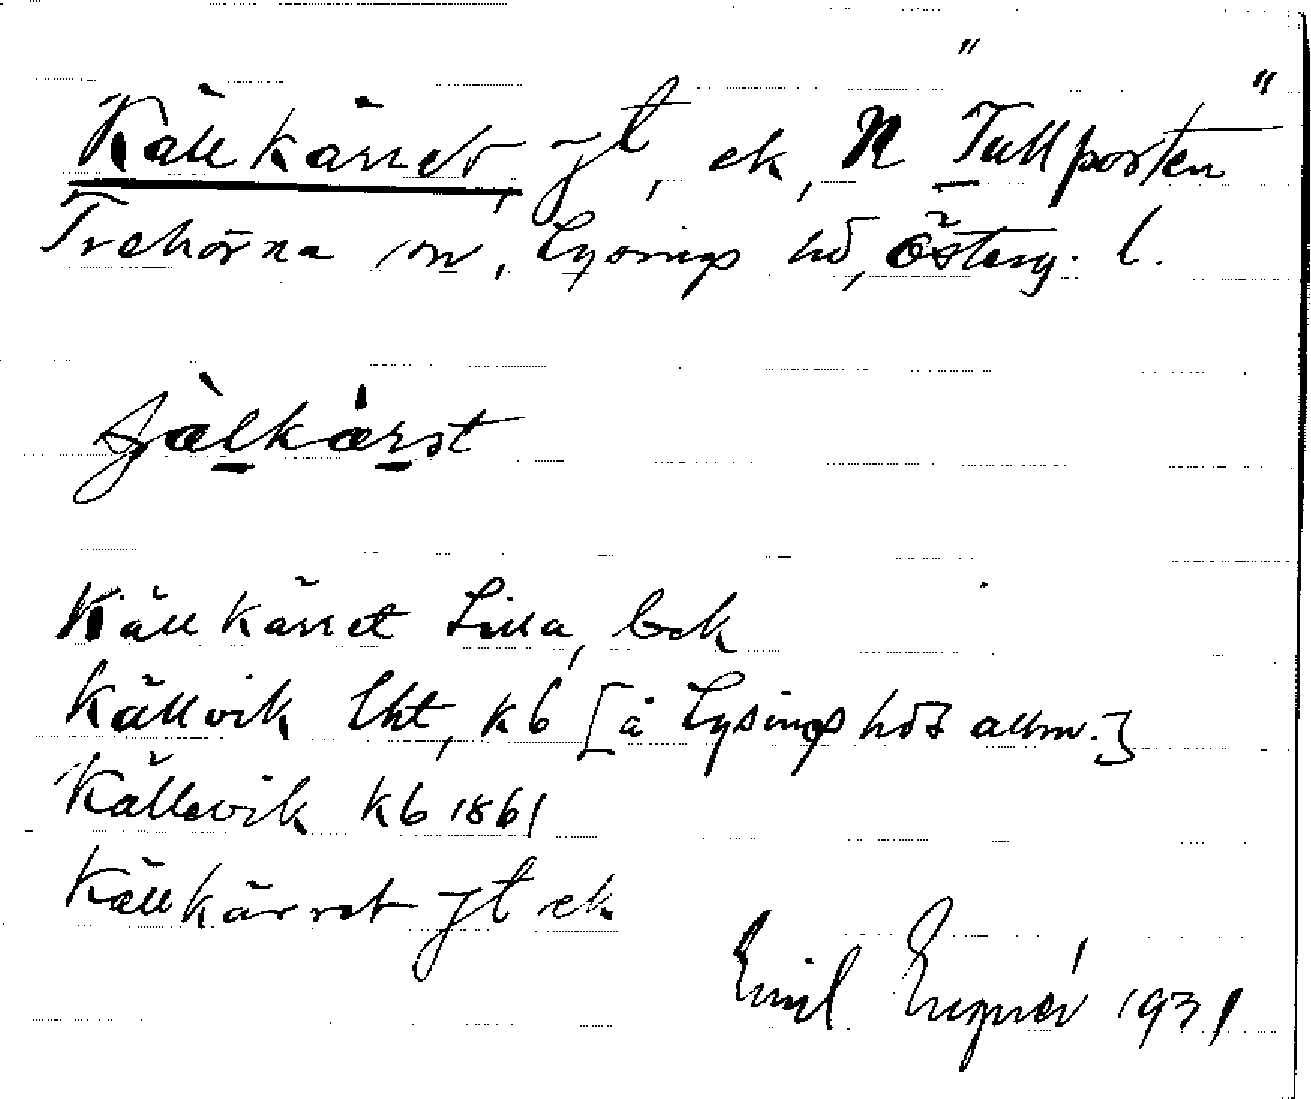 Källkärret, jt, ek, N "Tullporten"
Trehörna sn, Lysings hd, Österg. l.
jàlkárst
Källkärret Lilla, bek
Källvik lht, kb [å Lysings hds allm.]
Källevik kb 1861
Källkärret jt ek
Emil Engnér 1931